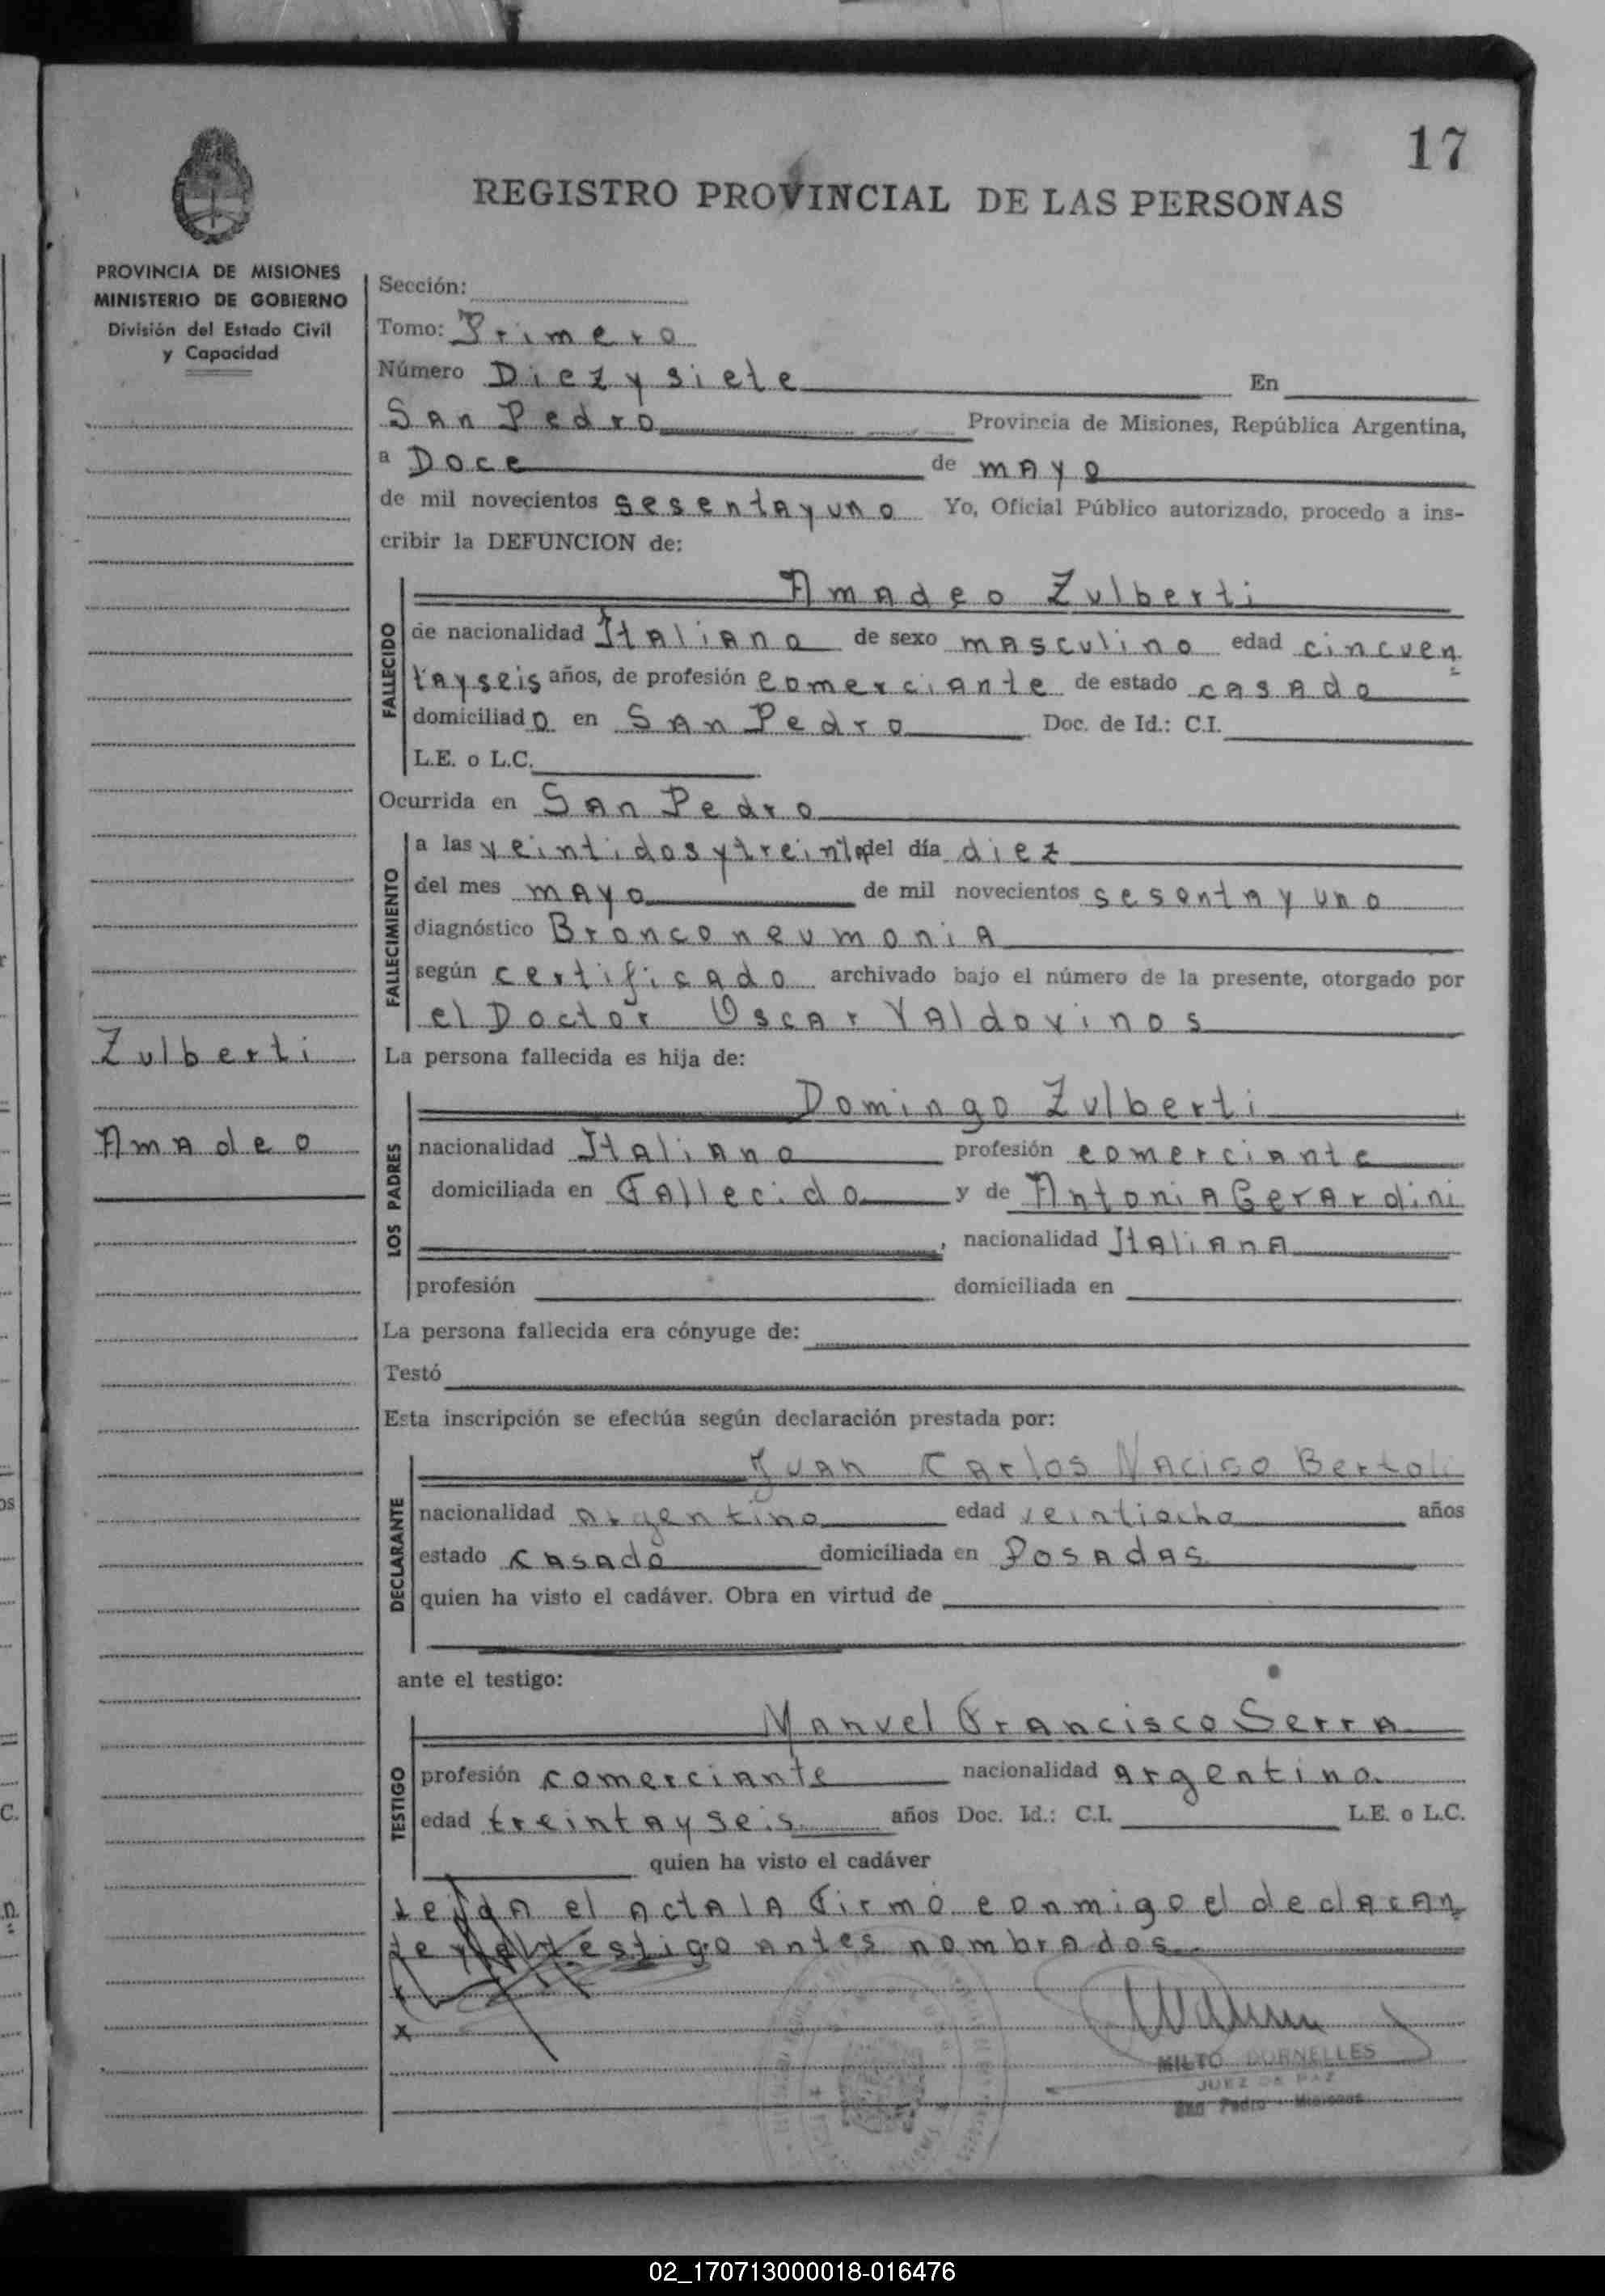 17
REGISTRO PROVINCIAL DE LAS PERSONAS
PROVINCIA DE MISIONES
MINISTERIO DE GOBIERNO
División del Estado Civil
y Capacidad
Zulberti
Amadeo
Sección:
Tomo: Primero
Número Diezysiete En
San Pedro Provincia de Misiones, República Argentina,
a Doce de mayo
de mil novecientos sesentayuno Yo, Oficial Público autorizado, procedo a ins-
cribir la DEFUNCION de:
FALLECIDO
Amadeo Zulberti
de nacionalidad Italiana de sexo masculino edad cincuen
tayseis años, de profesión comerciante de estado casado
domiciliado en San Pedro Doc. de Id.: C.I.
L.E. o L.C.
Ocurrida en San Pedro
FALLECIMIENTO
a las veintidosytreinta del día diez
del mes mayo de mil novecientos sesentayuno
diagnóstico Bronconeumonia
según certificado archivado bajo el número de la presente, otorgado por
el Doctor Oscar Valdovinos
La persona fallecida es hija de:
LOS PADRES
Domingo Zulberti
nacionalidad Italiana profesión comerciante
domiciliada en Fallecido y de Antonia Gerardini
, nacionalidad Italiana
profesión domiciliada en
La persona fallecida era cónyuge de:
Testó
Esta inscripción se efectúa según declaración prestada por:
DECLARANTE
Juan Carlos Naciso Bertoli
nacionalidad argentino edad veintiocho años
estado casado domiciliada en Posadas
quien ha visto el cadáver. Obra en virtud de
ante el testigo:
TESTIGO
Manuel Francisco Serra
profesión comerciante nacionalidad argentino
edad treintayseis años Doc. Id.: C.I. L.E. o L.C.
quien ha visto el cadáver
Leida el acta la firmó conmigo el declaran
te y el testigo antes nombrados
x
MILTO DORNELLES
JUEZ DE PAZ
San Pedro - Misiones
02_170713000018-016476